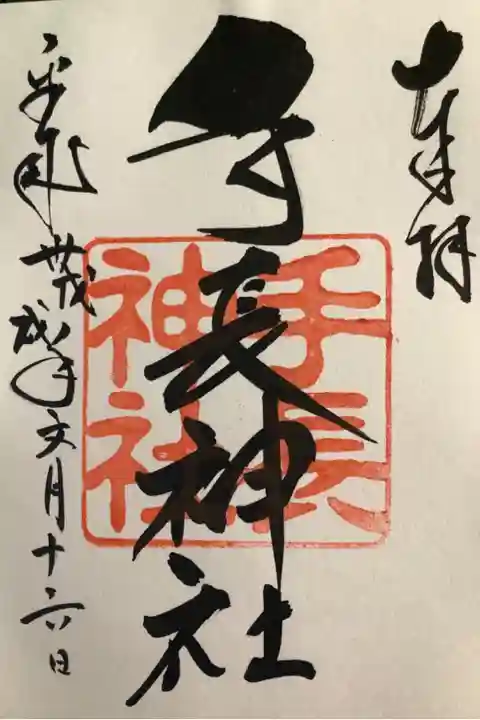 奉拝
手長神社
手長
神社
平成卅戊戌年文月十六日